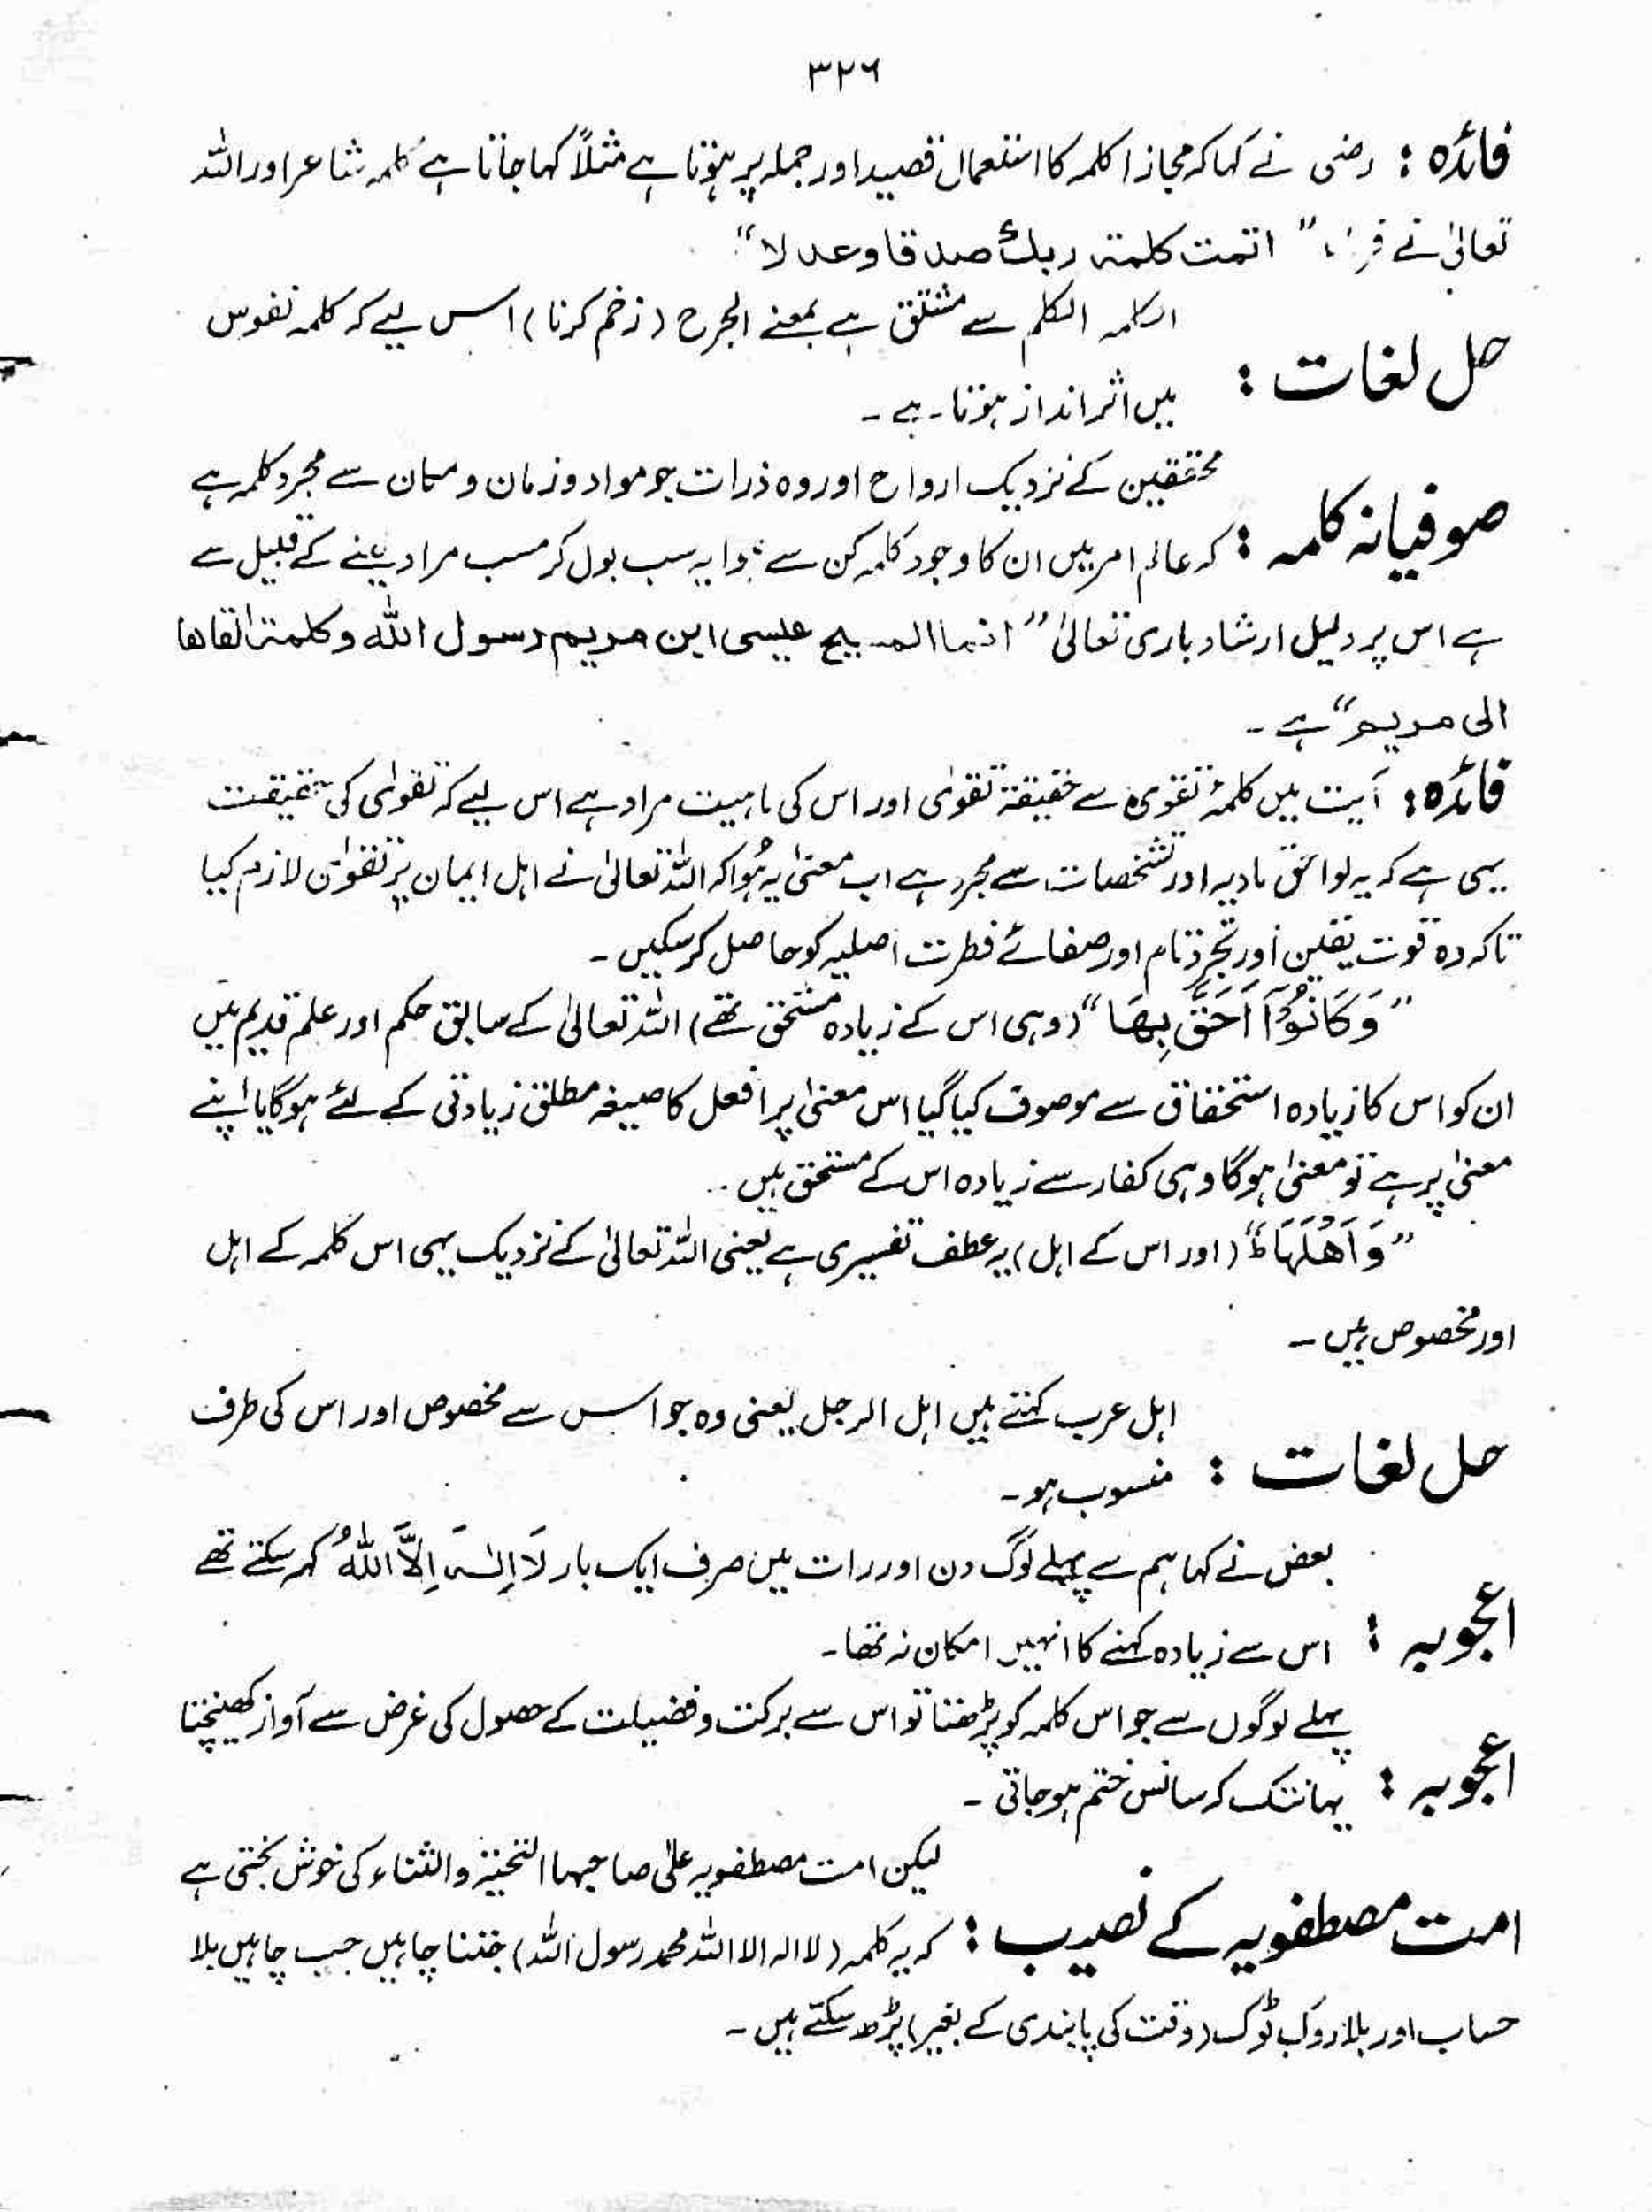 ۳۲۶
فائدہ : رضی نے کہا کہ مجازا کلمہ کا استعمال قصید اور جملہ پر ہوتا ہے مثلاً کہا جاتا ہے کلمہ شاعر اور اللہ
تعالیٰ نے " اتمت کلمۃ ربک صدقا وعدلا "
حل لغات : الکلمہ الکلم سے مشتق ہے بمعنے الجرح (زخم کرنا) اس لیے کہ کلمہ نفوس
میں اثر انداز ہوتا ہے ۔
صوفیانہ کلمہ : محققین کے نزدیک ارواح اور وہ ذرات جو مواد و زمان و مکان سے مجرد کلمہ ہے
کہ عالم امر میں ان کا وجود کلمہ کن سے ہوا یہ سبب بول کر مسبب مراد لینے کے قبیل سے
ہے اس پر دلیل ارشاد باری تعالیٰ " انما المسیح عیسی ابن مریم رسول اللہ وکلمتہ القاھا
الی مریم " ہے ۔
فائدہ : آیت میں کلمۂ تقوی سے حقیقۃ تقوٰی اور اس کی ماہیت مراد ہے اس لیے کہ تقوٰی کی حقیقت
یہی ہے کہ یہ لواحق مادیہ اور تشخصات سے مجرد ہے اب معنیٰ یہ ہُوا کہ اللہ تعالیٰ نے اہل ایمان پر تقوٰی لازم کیا
تاکہ وہ قوت یقین اور تجرد تام اور صفائے فطرت اصلیہ کو حاصل کر سکیں ۔
" وَكَانُوْٓا اَحَقَّ بِهَا " (وہی اس کے زیادہ مستحق تھے) اللہ تعالیٰ کے سابق حکم اور علم قدیم میں
ان کو اس کا زیادہ استحقاق سے موصوف کیا گیا اس معنیٰ پر افعل کا صیغہ مطلق زیادتی کے لئے ہو گا یا اپنے
معنیٰ پر ہے تو معنیٰ ہوگا وہی کفار سے زیادہ اس کے مستحق ہیں ۔
" وَاَهْلَهَا ط " (اور اس کے اہل) یہ عطف تفسیری ہے یعنی اللہ تعالیٰ کے نزدیک یہی اس کلمہ کے اہل
اور مخصوص ہیں ۔
حل لغات : اہل عرب کہتے ہیں اہل الرجل یعنی وہ جو اس سے مخصوص اور اس کی طرف
منسوب ہو ۔
اعجوبہ : بعض نے کہا ہم سے پہلے لوگ دن اور رات میں صرف ایک بار لَا اِلٰہَ اِلَّا اللہُ کہہ سکتے تھے
اس سے زیادہ کہنے کا انہیں امکان نہ تھا ۔
اعجوبہ : پہلے لوگوں سے جو اس کلمہ کو پڑھتا تو اس سے برکت و فضیلت کے حصول کی غرض سے آواز کھینچتا
یہانتک کہ سانس ختم ہو جاتی ۔
امت مصطفویہ کے نصیب : لیکن امت مصطفویہ علٰی صاحبہا التحیۃ والثناء کی خوش بختی ہے
کہ یہ کلمہ (لا الہ الا اللہ محمد رسول اللہ) جتنا چاہیں جب چاہیں بلا
حساب اور بلا روک ٹوک (وقت کی پابندی کے بغیر) پڑھ سکتے ہیں ۔